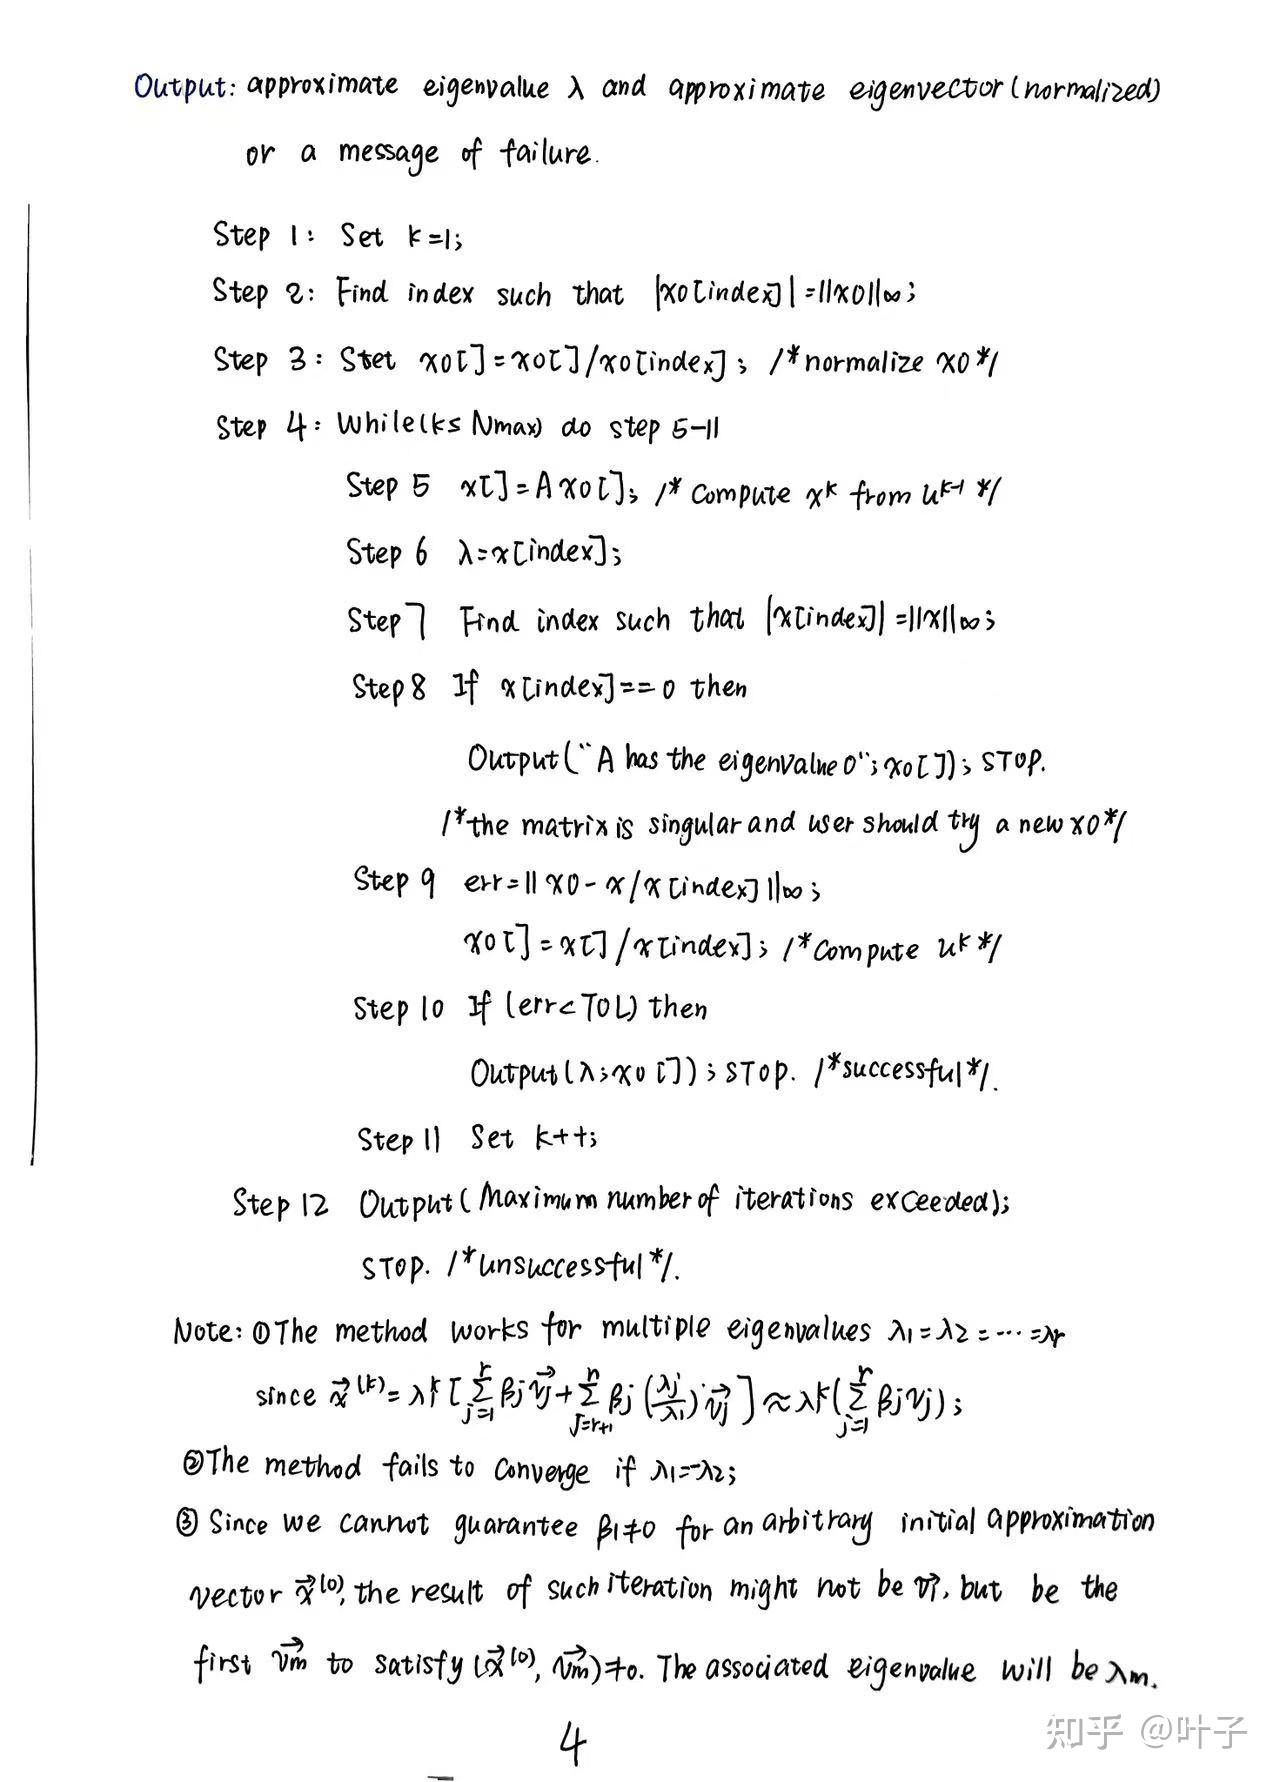 Output: approximate eigenvalue λ and approximate eigenvector (normalized)
or a message of failure.
Step 1: Set k=1;
Step 2: Find index such that |x0[index]|=||x0||∞;
Step 3: Stet x0[]=x0[]/x0[index]; /*normalize x0*/
Step 4: While(k≤Nmax) do step 5-11
Step 5 x[]=Ax0[]; /* Compute x^k from u^k-1 */
Step 6 λ=x[index];
Step 7 Find index such that |x[index]|=||x||∞;
Step 8 If x[index]==0 then
Output("A has the eigenvalue 0"; x0[]); STOP.
/*the matrix is singular and user should try a new x0*/
Step 9 err=||x0-x/x[index]||∞;
x0[]=x[]/x[index]; /*Compute u^k*/
Step 10 If (err<TOL) then
Output(λ; x0[]); STOP. /*successful*/.
Step 11 Set k++;
Step 12 Output(Maximum number of iterations exceeded);
STOP. /*unsuccessful*/.
Note: ①The method works for multiple eigenvalues λ1=λ2=⋯=λr
since x⃗^(k)=λ₁^k[∑_{j=1}^{r} βj v⃗j+∑_{j=r+1}^{n} βj(λj/λ1) v⃗j]≈λ₁^k(∑_{j=1}^{r} βjvj);
②The method fails to converge if λ1=-λ2;
③ Since we cannot guarantee β1≠0 for an arbitrary initial approximation
vector x⃗^(0), the result of such iteration might not be v⃗1, but be the
first v⃗m to satisfy (x⃗^(0), v⃗m)≠0. The associated eigenvalue will be λm.
4
知乎 @叶子